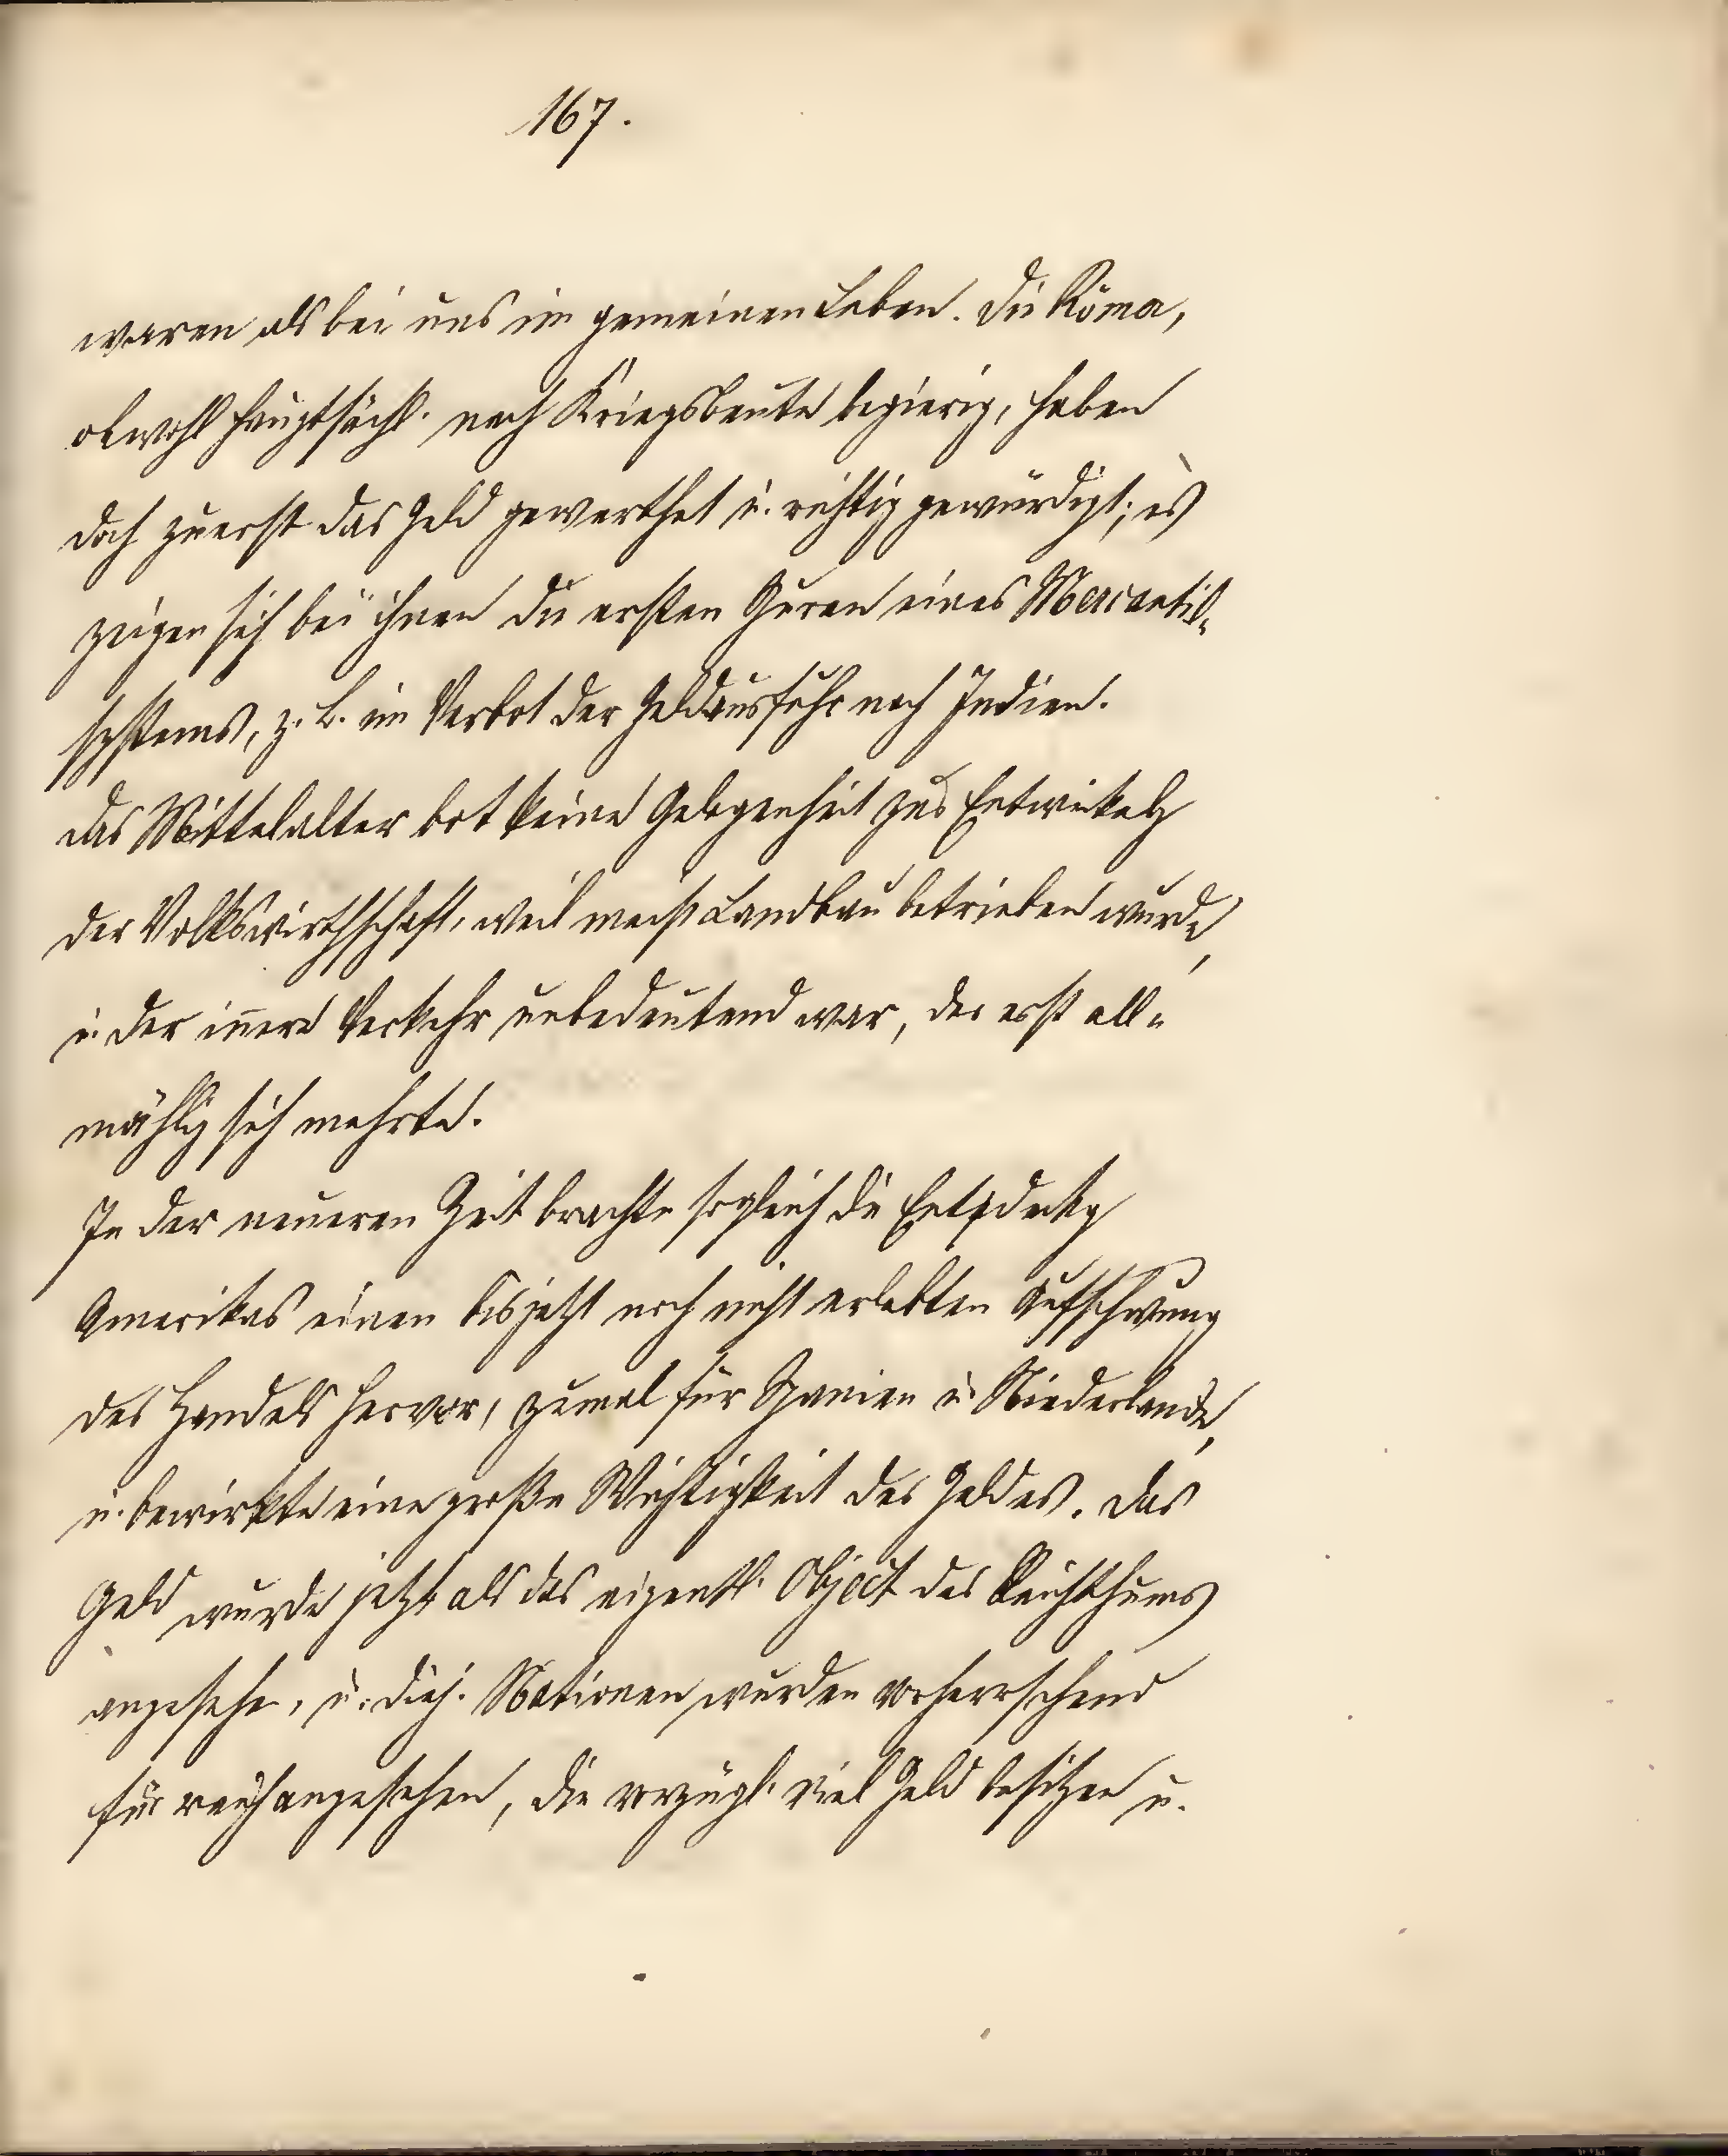 167.
waren als bei uns im gemeinen Leben. Die Römer,
obwohl hauptsächl. nach Kriegsbeute begierig, haben
doch zuerst das Geld gewerthet u. richtig gewürdigt; es
zeigen sich bei ihnen die ersten Spuren eines Mercantil-
systems, z. B. im Verbot der Geldausfuhr nach Indien.
Das Mittelalter bot keine Gelegenheit zur Entwickelg
der Volkswirthschaft, weil meist Landbau betrieben wurde,
u. der innere Verkehr unbedeutend war, der erst all-
mählig sich mehrte.
In der neueren Zeit brachte sogleich die Entdeckg
Amerikas einen bis jetzt noch nicht erlebten Aufschwung
des Handels hervor, zumal für Spanien u. Niederlande,
u. bewirkte eine große Wichtigkeit des Geldes. Das
Geld wurde jetzt als das eigentl. Object des Reichthums
angesehn, u. diej. Nationen wurden vorherrschend
für reich angesehen, die vorzügl. viel Geld besitzen u.